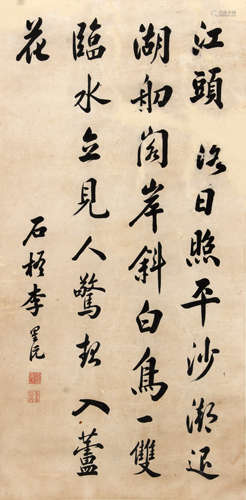 江頭落日照平沙潮退
漁舠閣岸斜白鳥一雙
臨水立見人驚起入蘆
花
石梧李星沅